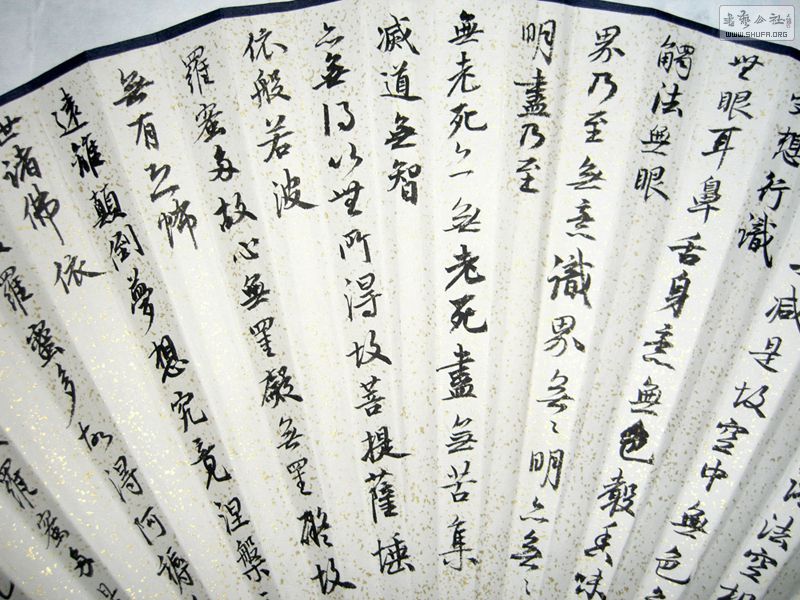 法空相
想行識
減是故空中無色
無眼耳鼻舌身意無色聲香味
觸法無眼
界乃至無意識界無〻明亦無〻
明盡乃至
無老死亦無老死盡無苦集
滅道無智
亦無得以無所得故菩提薩埵
依般若波
羅蜜多故心無罣礙無罣礙故
無有恐怖
遠離顛倒夢想究竟涅槃
世諸佛依
羅蜜多故得阿耨
羅蜜多
書藝公社
WWW.SHUFA.ORG